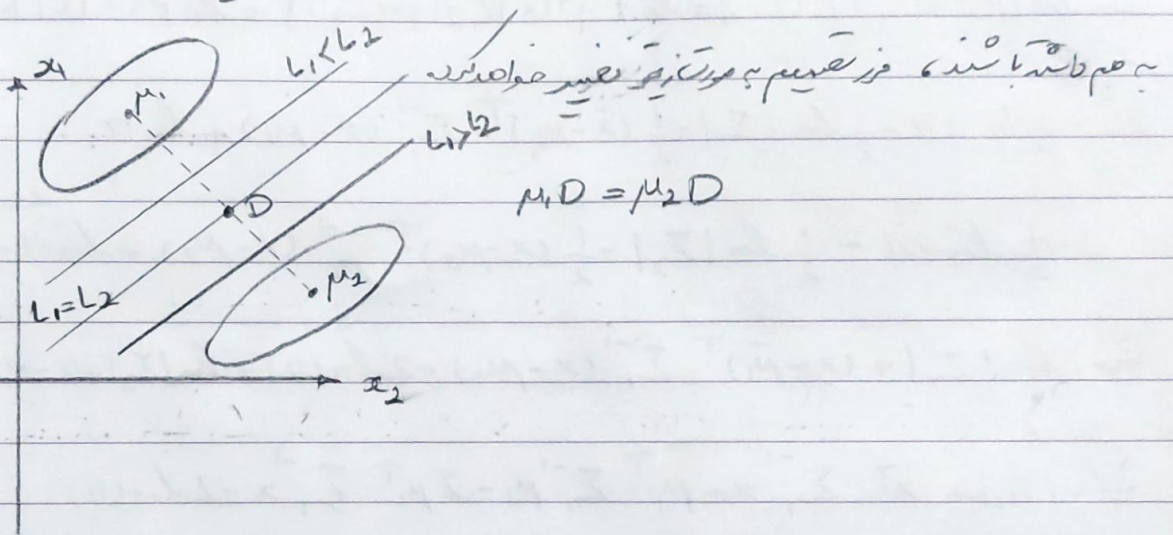 به هم داشته باشند، مرز تصمیم به صورت زیر تغییر خواهد کرد
x1
L1<L2
μ1
L1>L2
μ1D = μ2D
D
μ2
L1=L2
x2